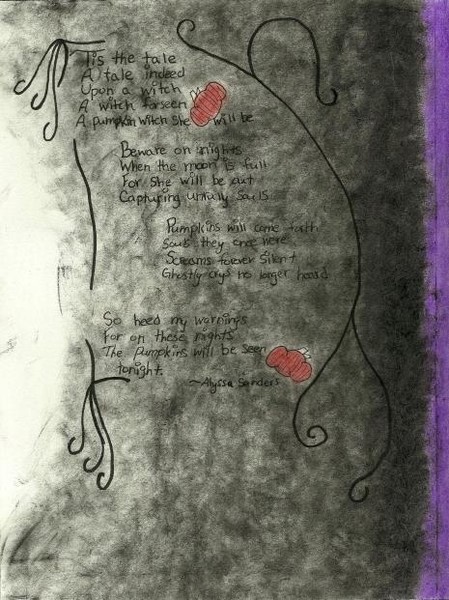 'Tis the tale
A tale indeed
Upon a witch
A witch forseen
A pumpkin witch she will be
Beware on nights
When the moon is full
For she will be out
Capturing unruly souls
Pumpkins will come forth
Souls they once were
Screams forever silent
Ghostly crys no longer heard
So heed my warnings
For on these nights
The pumpkins will be seen
tonight.
~Alyssa Sanders